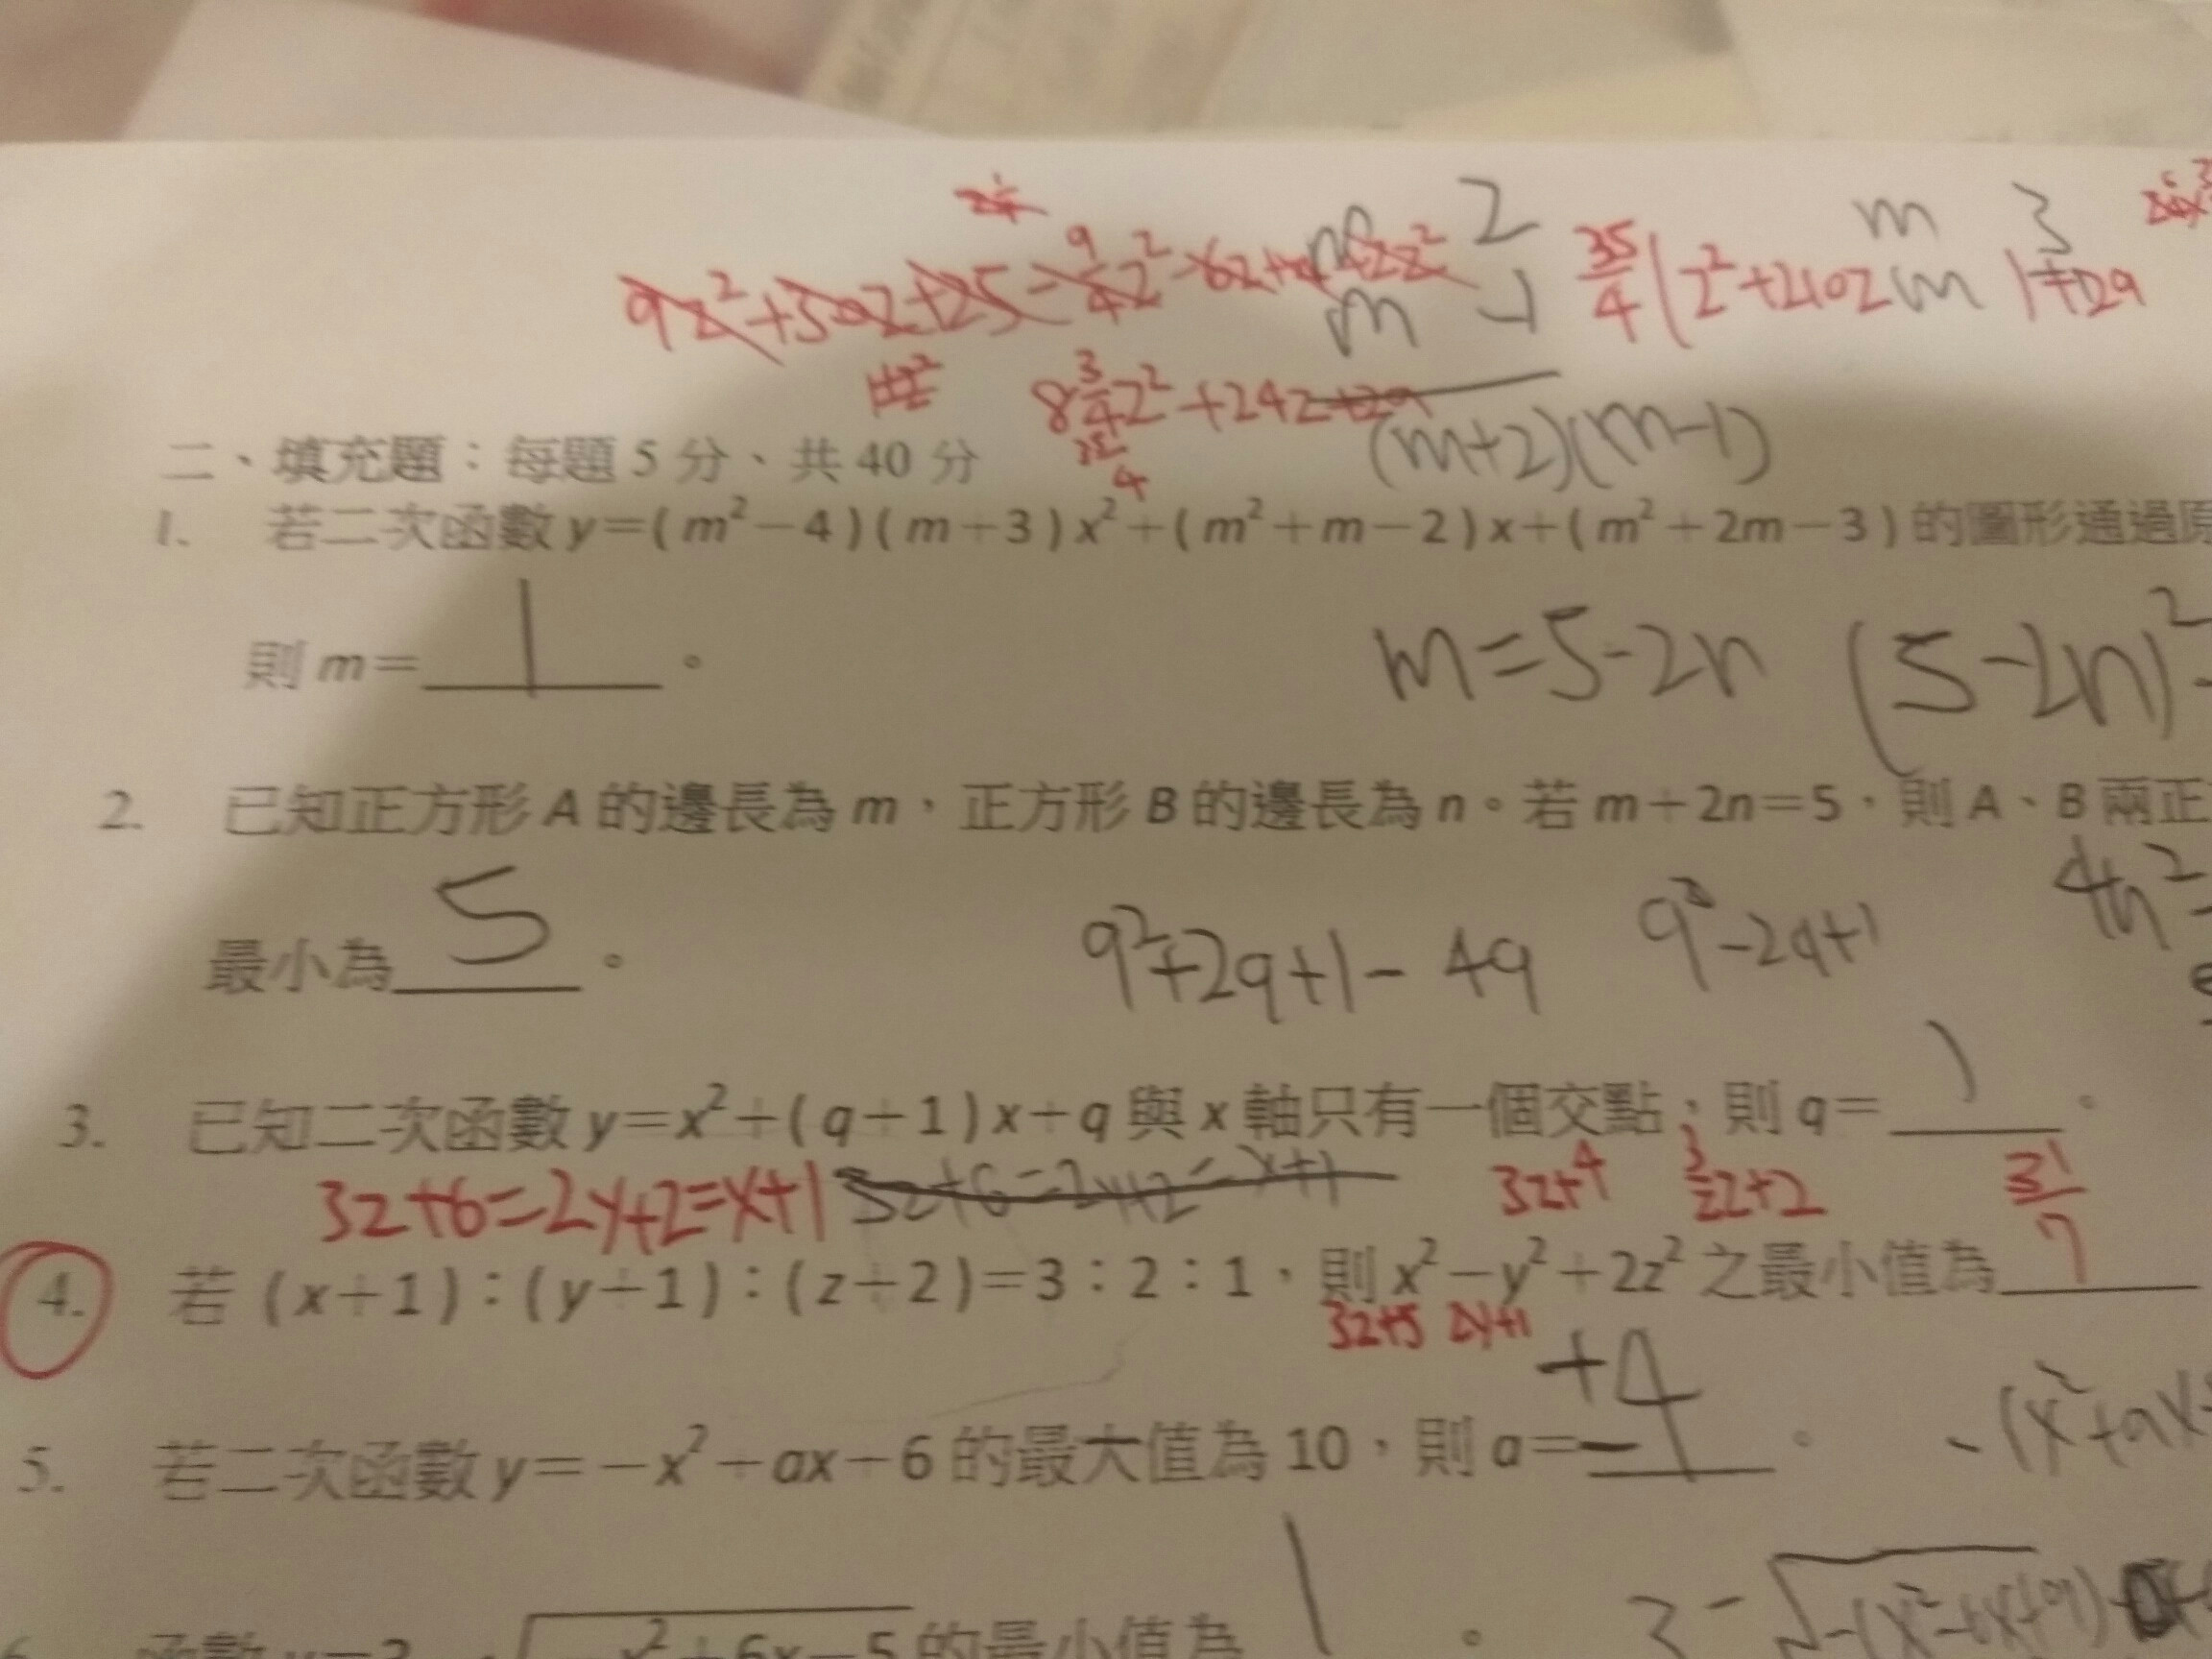 m 2
m -1
(m+2)(m-1)
m 3
m 1
9z²+30z+25-9/4z²-6z
8 3/4z²+24z+29
35/4
35/4(z²+
二、填充題：每題5分、共40分
1. 若二次函數y=(m²-4)(m+3)x²+(m²+m-2)x+(m²+2m-3)的圖形通過原
則m= 1 。
m=5-2n (5-2n)²-
2. 已知正方形A的邊長為m，正方形B的邊長為n。若m+2n=5，則A、B兩正
最小為 5 。
4n²
q²+2q+1-4q q²-2q+1
3. 已知二次函數y=x²+(q+1)x+q與x軸只有一個交點，則q= 1 。
3z+6=2y+2=x+1 3z+6=2y+2=x+1 3z+4 3/2z+2
4. 若(x+1)：(y+1)：(z+2)=3：2：1，則x²-y²+2z²之最小值為 31/7
3z+5 2y+1
5. 若二次函數y=-x²+ax-6的最大值為10，則a= +4 -4 。
-(x²+ax
函數 x²+6x-5的最小值為 1 。
3-√-(x²-6x+9)